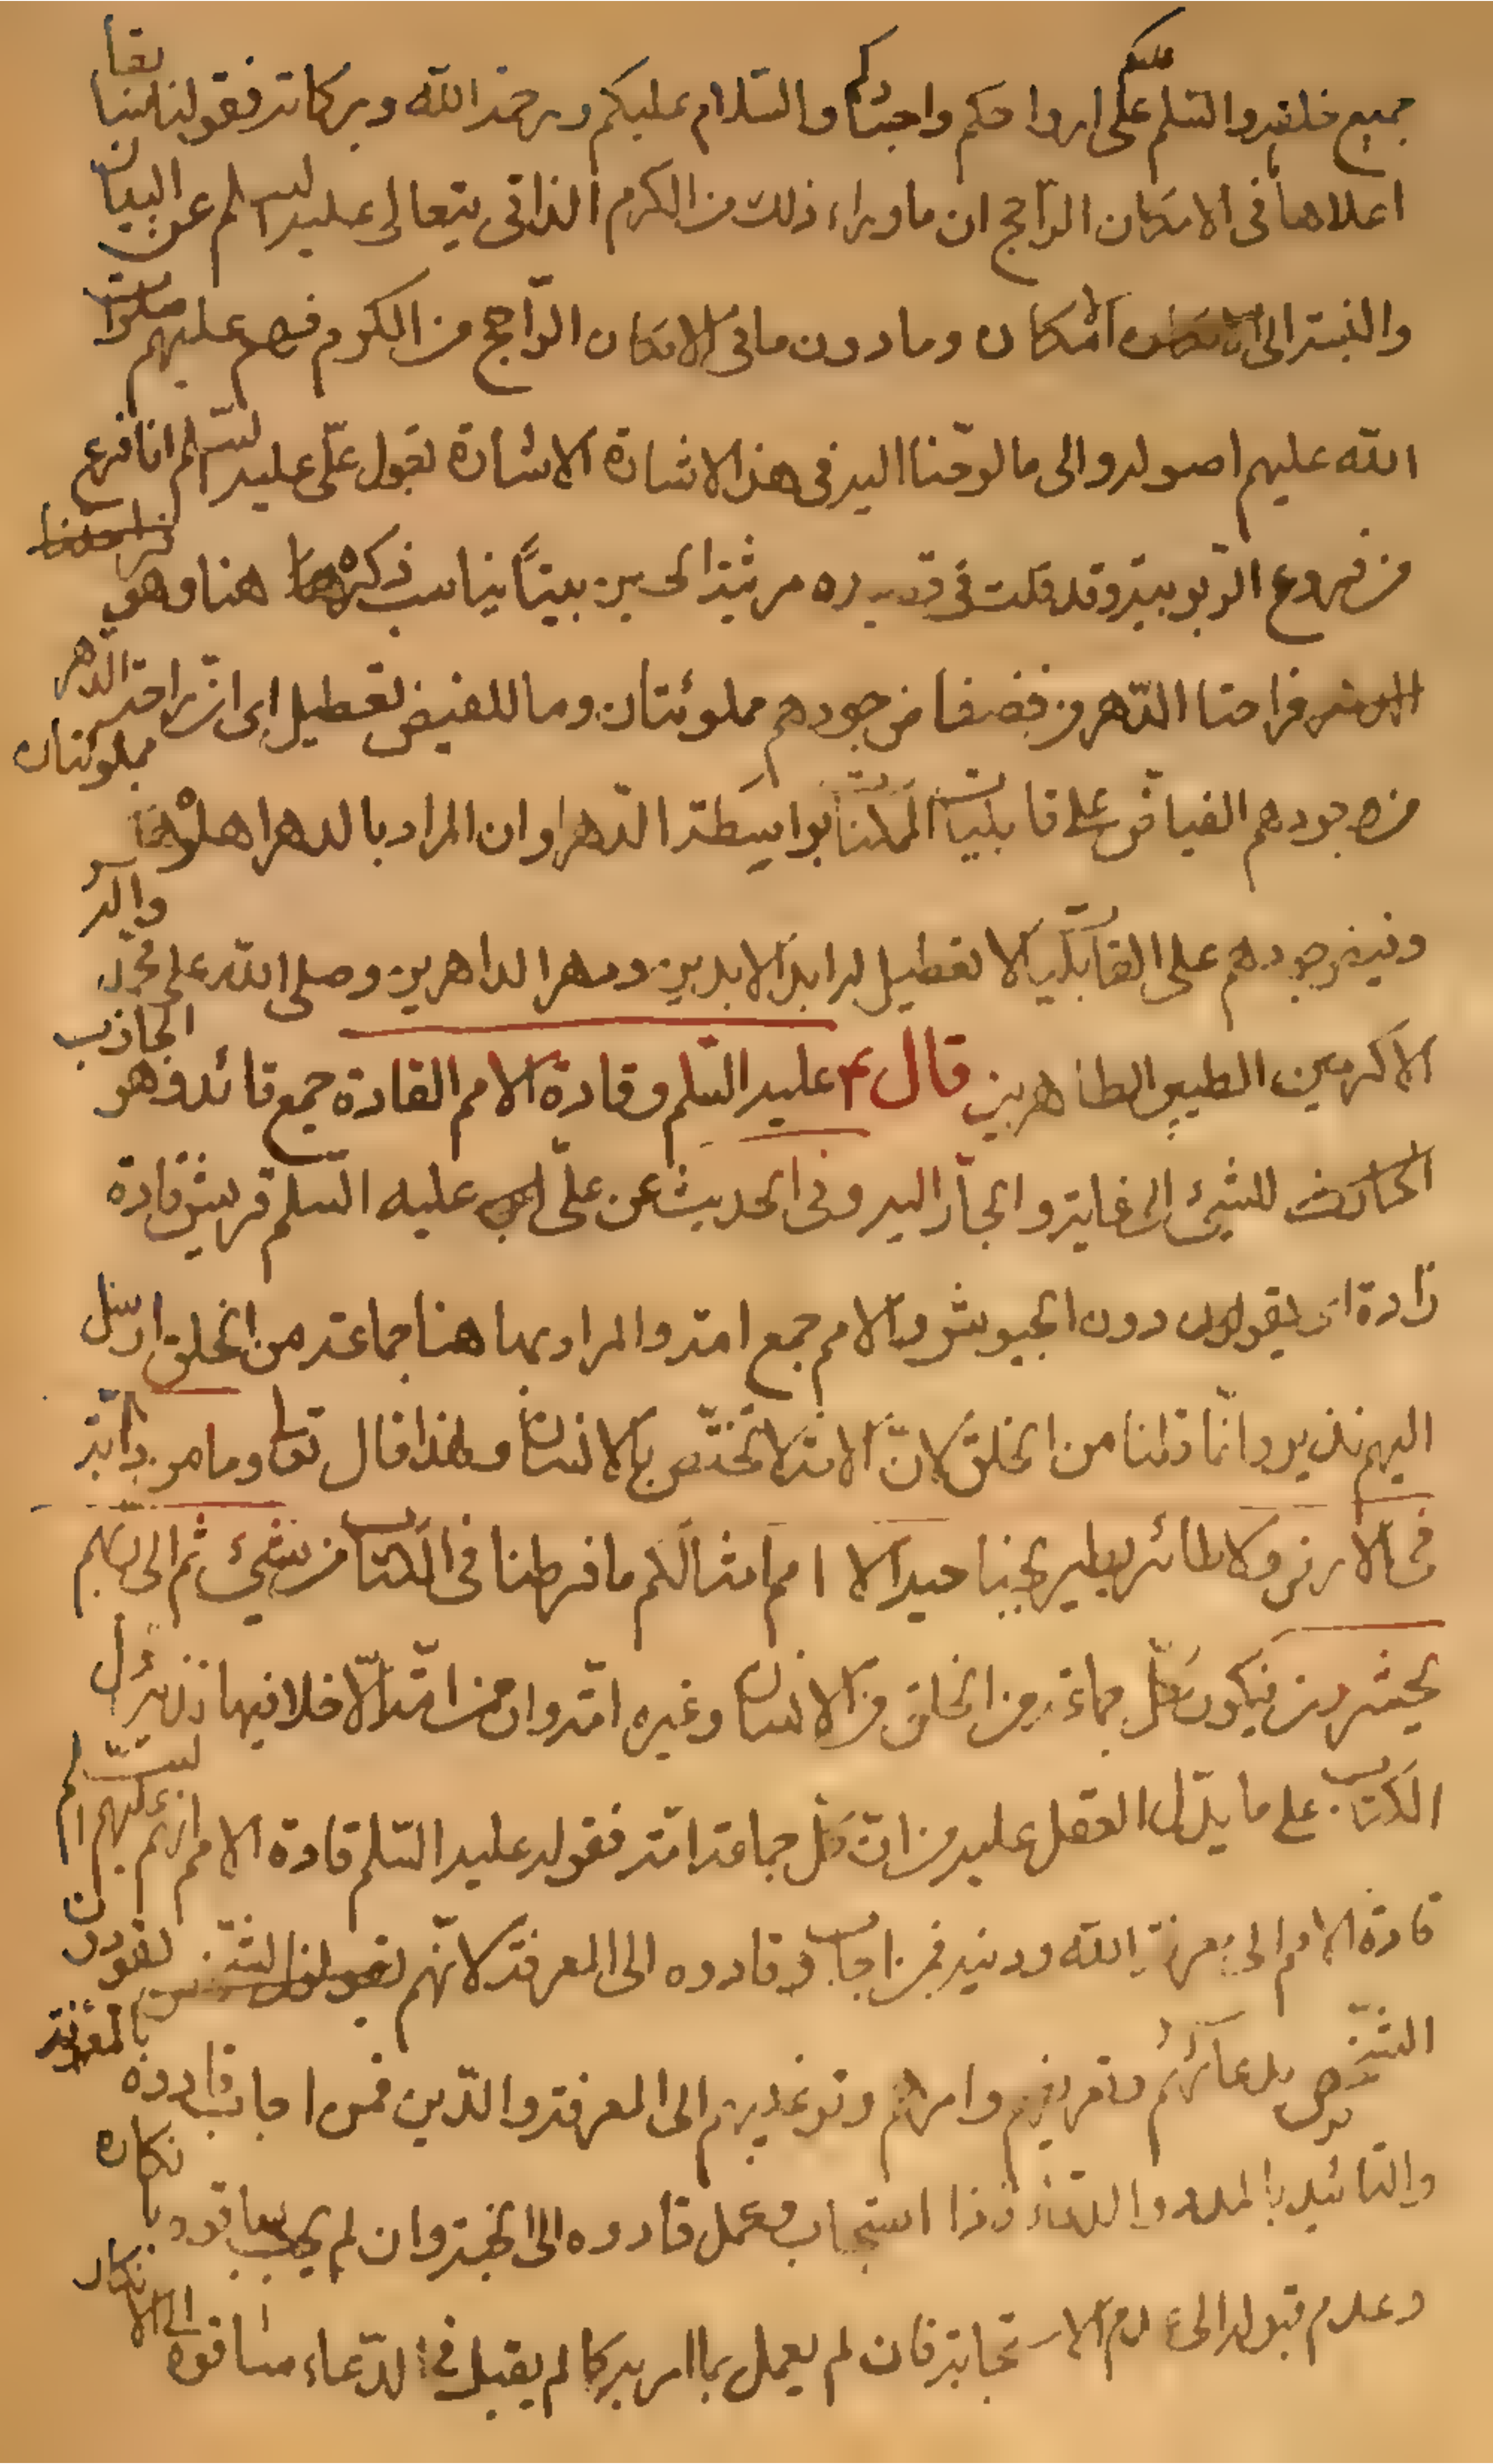 جميع خلقه والسلم عليكم على ارواحكم واجسادكم والسلام عليكم ورحمة الله وبركاته فقولنا هنا بقا
اعلاها في الامكان الراجح ان ما وراء ذلك من الكرم الذاتى يتعالى عليه السلم عن البيان
والنسبة الى الامكان وما دون ما في الامكان الراجح من الكرم فهم عليهم صلوات
الله عليهم اصوله والى ما لوحنا اليه في هذه الاشارة الاشارة بقول علي عليه السلم انا فرع
من فروع الربوبية وقد قلت في قصيده مرثية الحسين بيتاً يناسب ذكره هنا وهو
فراحتا الدهر من فضفاض جودهم مملوئتان وما للفيض تعطيل اى ان راحتى الدهر مملوئتان
من جودهم الفياض على قابليات الممكنات بواسطة الدهر او ان المراد بالدهر اهلوه
وفيض جودهم على القابليات لا تعطيل له ابد الابدين ودهر الداهرين وصلى الله على محمد وآله
الاكرمين الطيبين الطاهرين قال عليه السلم وقادة الامم القادة جمع قائد وهو الجاذب
للشيئ الى غايته والجار اليه وفى الحديث عن علي عليه السلم قريش قادة
ذادة اى يقودون الجيوش والامم جمع امة والمراد بها هنا جماعة من الخلق ارسل
اليهم نذير وانما قلنا من الخلق لان الامة لا تختص بالانسان ولهذا قال تعالى وما من دابة
في الارض ولا طائر يطير بجناحيه الا امم امثالكم ما فرطنا في الكتاب من شيئ ثم الى ربهم
يحشرون فيكون كل جماعة من الخلق من الانسان وغيره امة وان من امة الا خلا فيها نذير دل
الكتاب على ما يدل العقل عليه من ان كل جماعة امة فقوله عليه السلم قادة الامم انهم عليهم السلم
قادة الامم الى معرفة الله ودينه فمن اجاب قادوه الى المعرفة لانهم يقودون
الشخص بدعائهم وتعريفهم وامرهم وترغيبهم الى المعرفة والدين فمن اجاب قادوه بالمعرفة
والتائيد بالمدد فاذا استجاب وعمل قادوه الى الجنة وان لم يجب ساقوه بانكاره
وعدم قبوله الى عدم الاستجابة فان لم يعمل بما امر به كما لم يقبل في الدعاء ساقوه الى الانكار